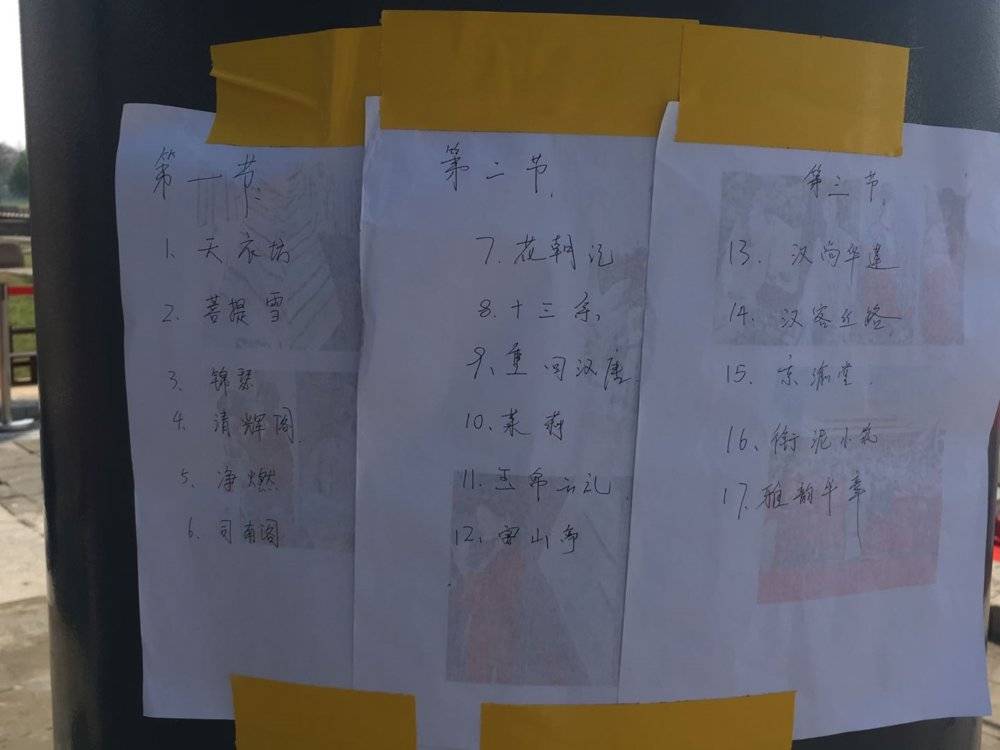 第一节
1. 天衣坊
2. 菩提雪
3. 锦瑟
4. 清辉阁
5. 净燃
6. 司南阁
第二节
7. 花朝记
8. 十三余
9、重回汉唐
10、菜莳
11、玉帛云礼
12、寒山亭
第三节
13、汉尚华莲
14、汉客丝路
15、京渝堂
16、衔泥小筑
17、雅韵华章